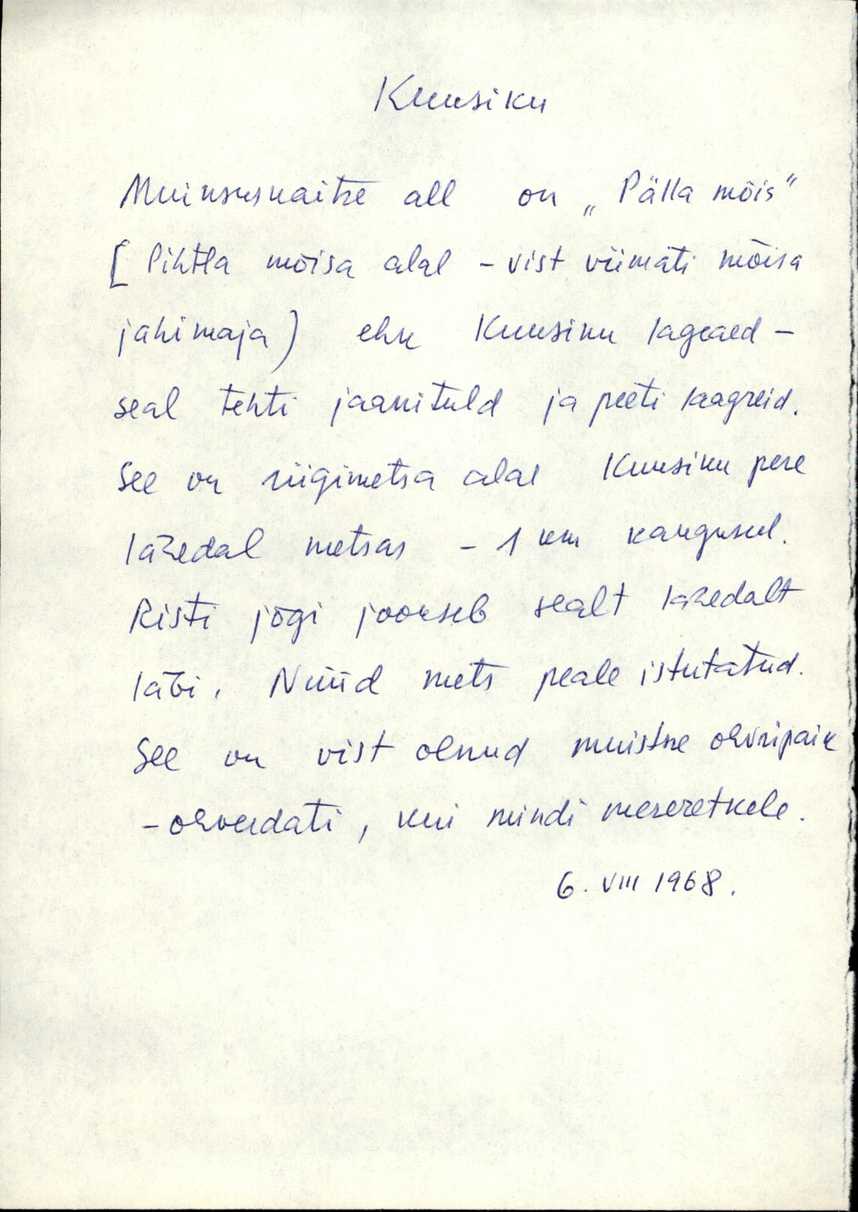 Kuusiku
Muinsuskaitse all on „Pälla mõis"
[Pihtla mõisa alal - vist viimati mõisa
jahimaja) ehk Kuusiku lageaed -
seal tehti jaanituld ja peeti laagreid.
See on riigimetsa alal Kuusiku pere
lähedal metsas - 1 km kaugusel.
Risti jõgi jookseb sealt lähedalt
läbi. Nüüd mets peale istutatud.
See on vist olnud muistne ohvripaik
- ohverdati, kui mindi mereretkele.
6. VIII 1968.